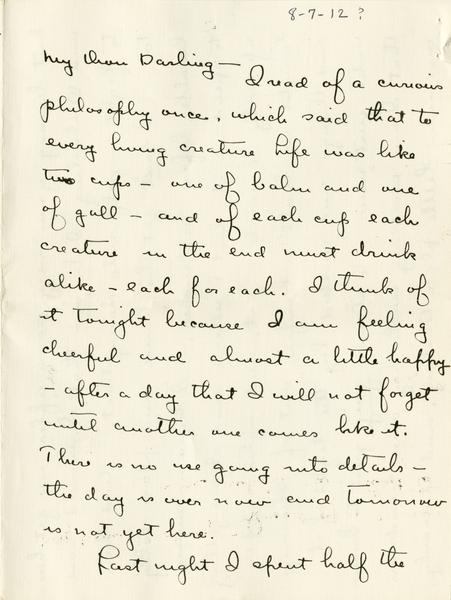 8-7-12?
My Own Darling —
I read of a curious
philosophy once, which said that to
every living creature life was like
two cups — one of balm and one
of gall — and of each cup each
creature in the end must drink
alike — each for each. I think of
it tonight because I am feeling
cheerful and almost a little happy
— after a day that I will not forget
until another one comes like it.
There is no use going into details —
the day is over now and tomorrow
is not yet here.
Last night I spent half the